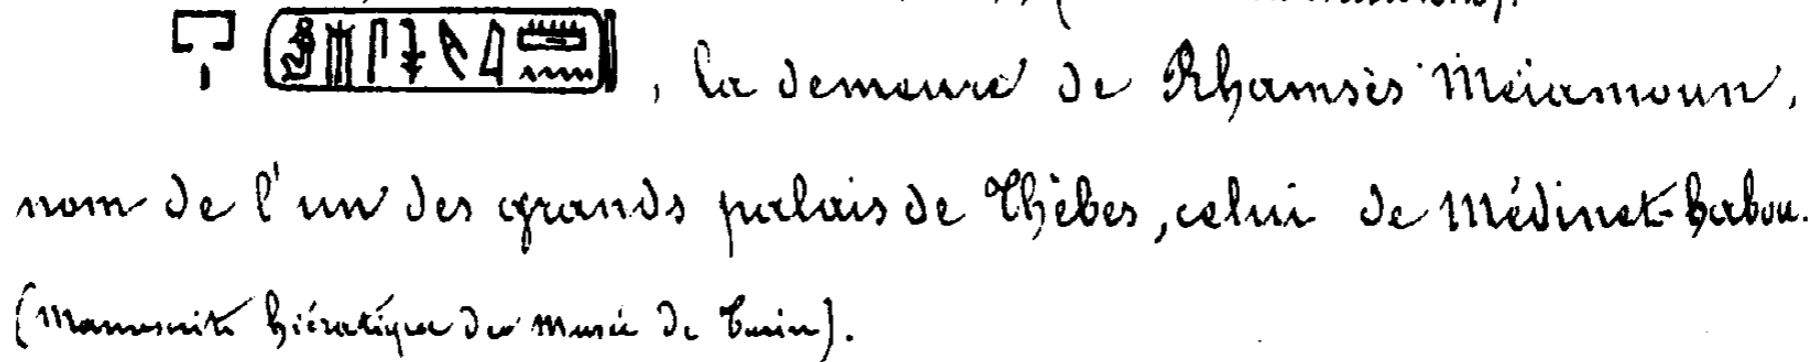 , la demeure de Rhamsès Meiamoun,
nom de l'un des grands palais de Thèbes, celui de Médinet-habou.
(Manuscrit hiératique du musée de Turin).